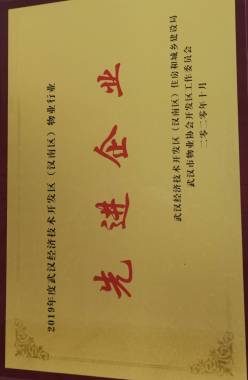 2019年度武汉经济技术开发区（汉南区）物业行业
先进企业
武汉经济技术开发区（汉南区）住房和城乡建设局
武汉市物业协会开发区工作委员会
二〇二〇年十月